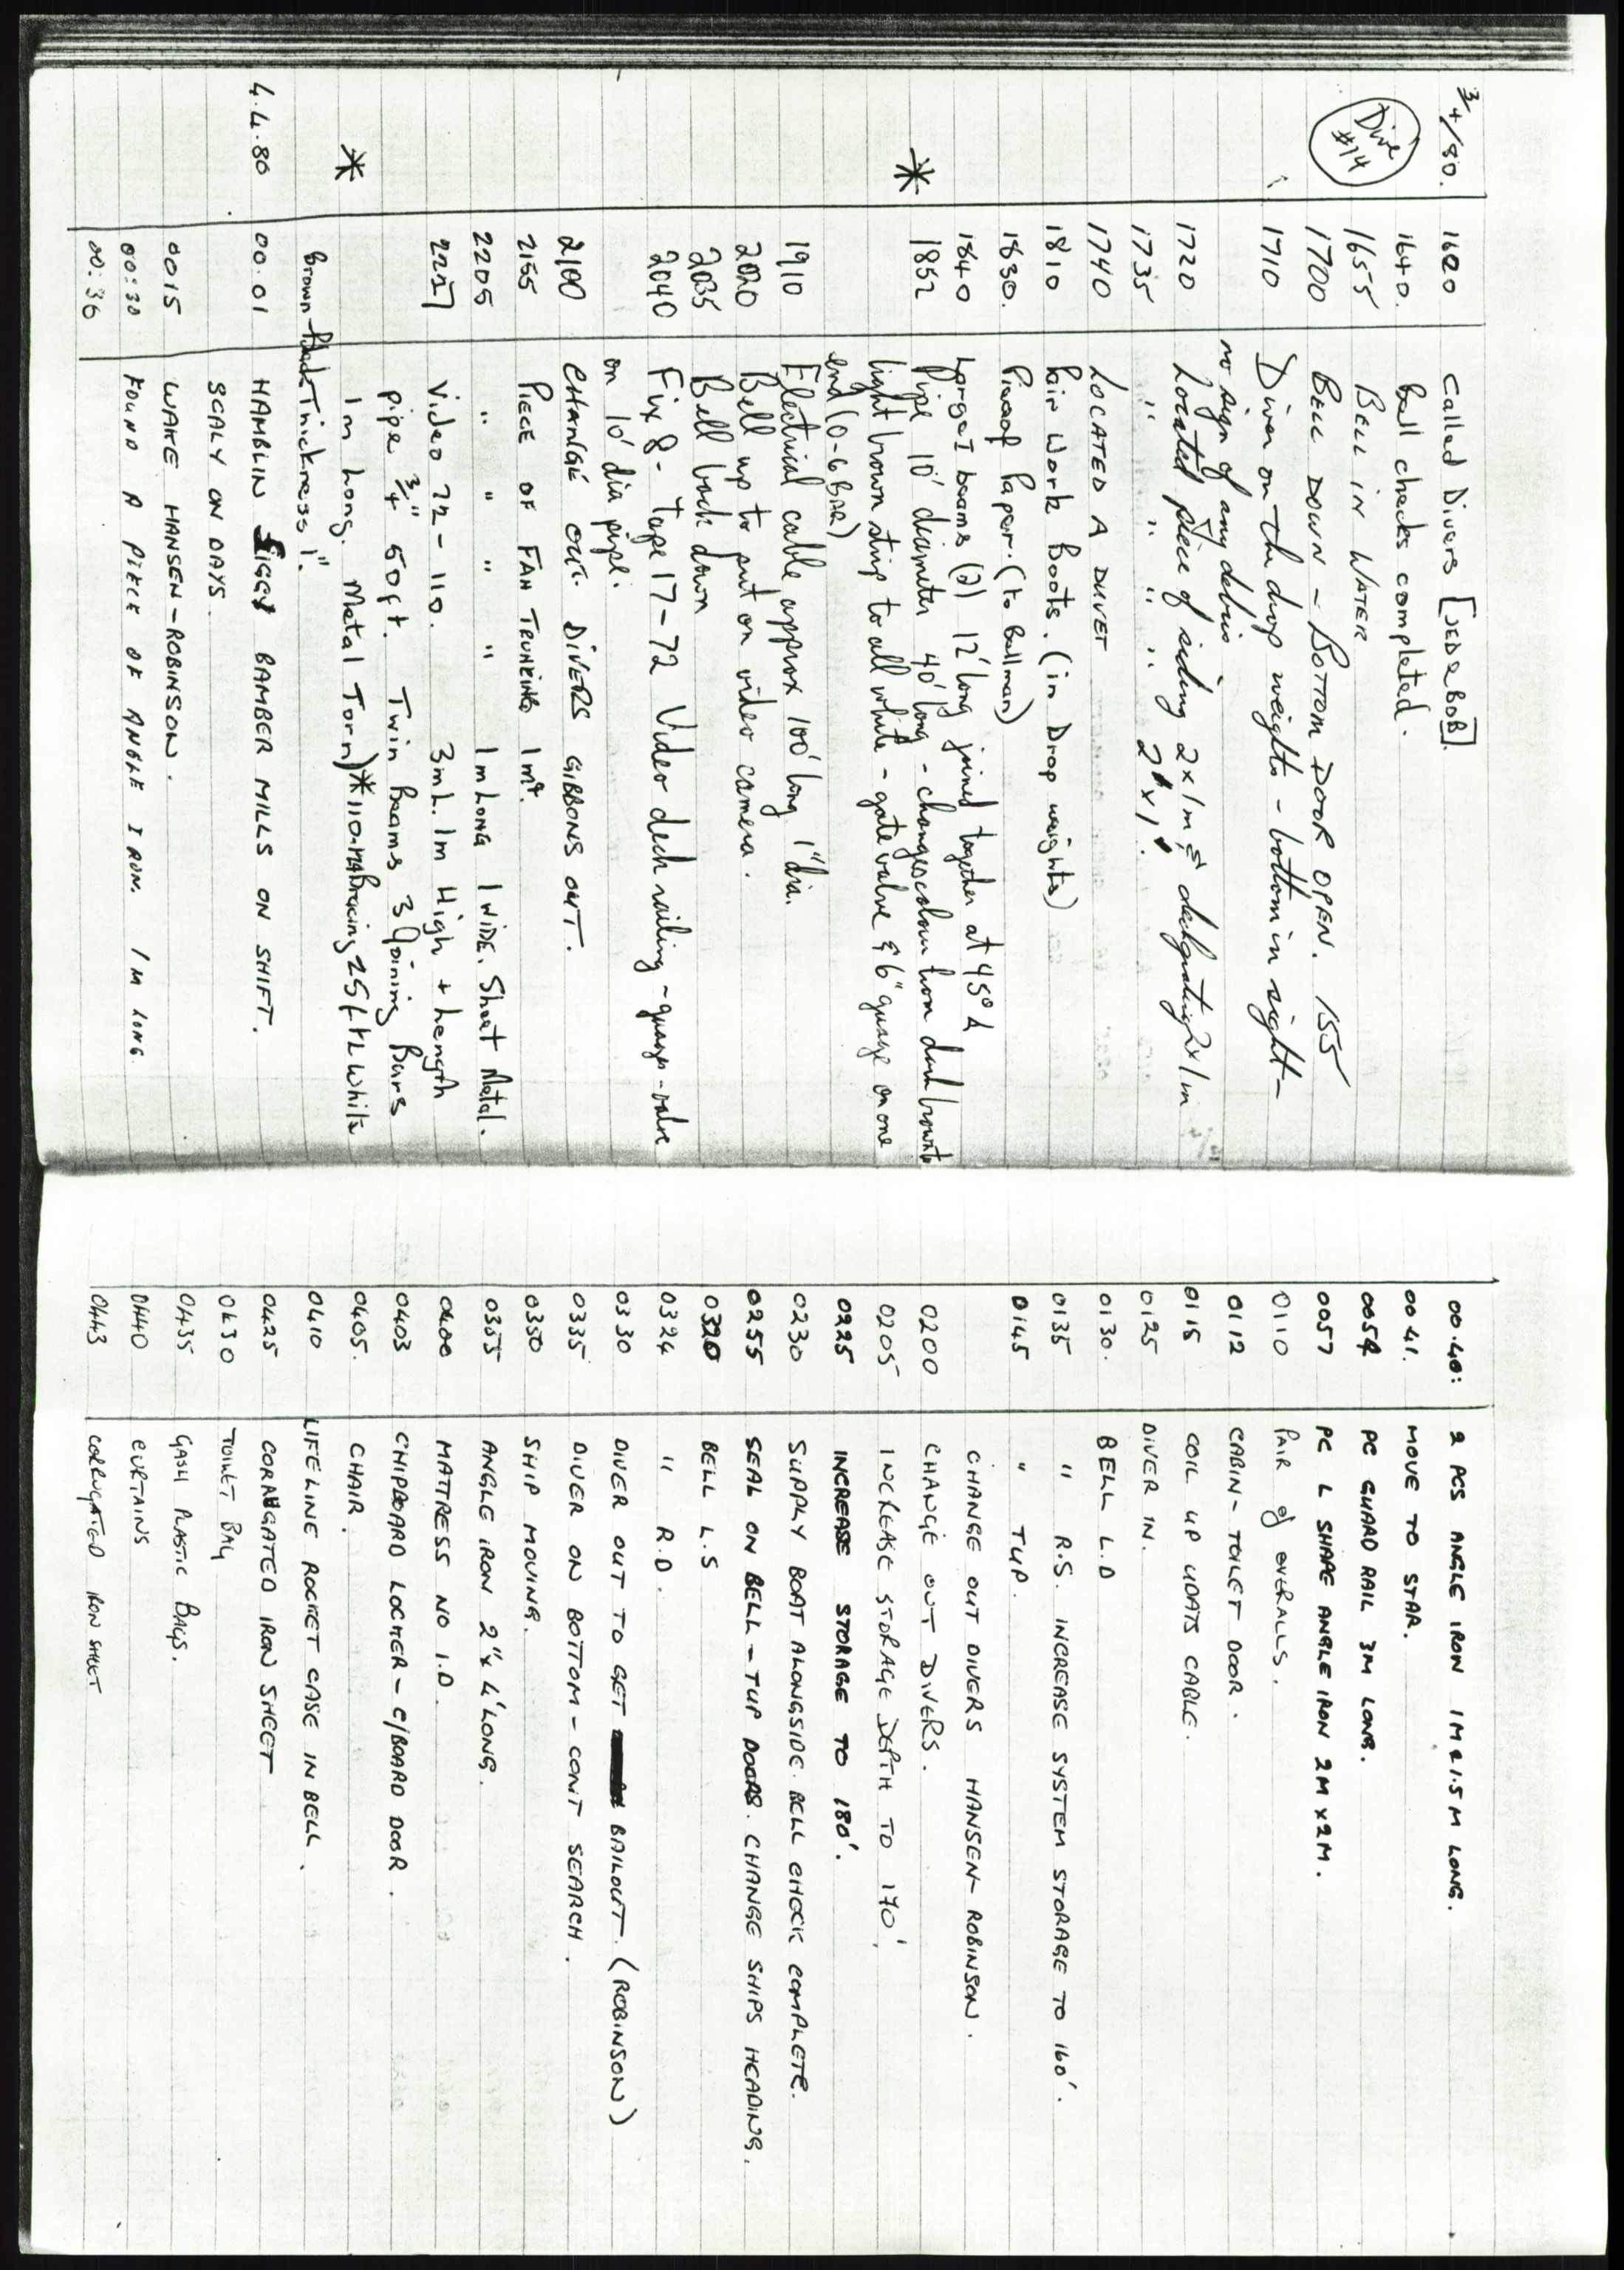 3/4/80. 1620 Called Divers [JED & BOB].
1640. bell checks completed.
Dive #14
1655 BELL IN WATER
1700 BELL DOWN - BOTTOM DOOR OPEN. 155
1710 Diver on the drop weights - bottom in sight -
no sign of any debris
1720 Located piece of siding 2 x 1m & 2 x 1m
1735 " " " " 2' x 1'.
1740 LOCATED A DUVET
1810 Pair Work Boots. (in Drop weights)
1830. Piece of Paper. (to bellman)
1840 Large I beams (2) 12' long joined together at 45°
* 1852 Pipe 10' diameter 40' long - changes colour from dark brown to
light brown strip to all white - gate valve & 6" guage on one
end (0-6 BAR)
1910 Electrical cable, approx 100' long 1" dia.
2020 Bell up to put on video camera.
2035 Bell back down
2040 Fix 8 - Tape 17-72 Video deck railing - guage - valve
on 10' dia pipe.
2100 CHANGE OUT DIVERS GIBBONS OUT.
2155 PIECE OF FAN TRUNKING 1m².
2205 " " " " 1m LONG 1 WIDE. Sheet Metal.
2227 Video 72-110. 3mL. 1m High + Length
pipe 3/4" 50ft. Twin Beams 3 Joining Bars
* 1m Long. Metal Torn) * 110- Bracing 25ft L White
Brown - Thickness 1".
4.4.80 00.01 HAMBLIN SIGGY BAMBER MILLS ON SHIFT.
SCALY ON DAYS.
0015 WAKE HANSEN - ROBINSON.
00:30 FOUND A PIECE OF ANGLE IRON. 1M LONG.
00:36
00.40: 2 PCS ANGLE IRON 1M & 1.5M LONG.
00 41. MOVE TO STAR.
0054 PC GUARD RAIL 3M LONG.
0057 PC L SHAPE ANGLE IRON 2M x 2M.
0110 PAIR of OVERALLS.
0112 CABIN - TOILET DOOR.
0115 COIL UP UDATS CABLE.
0125 DIVER IN.
0130. BELL L.D
0135 " R.S. INCREASE SYSTEM STORAGE TO 160'.
0145 " TUP.
CHANGE OUT DIVERS HANSEN - ROBINSON.
0200 CHANGE OUT DIVERS.
0205 INCREASE STORAGE DEPTH TO 170'.
0225 INCREASE STORAGE TO 180'.
0230 SUPPLY BOAT ALONGSIDE. BELL CHECK COMPLETE.
0255 SEAL ON BELL - TUP DOORS. CHANGE SHIPS HEADING.
0320 BELL L.S
0324 " R.D.
0330 DIVER OUT TO GET BAILOUT. (ROBINSON)
0335 DIVER ON BOTTOM - CONT SEARCH.
0350 SHIP MOVING.
0355 ANGLE IRON 2" x 4' LONG.
0400 MATTRESS NO I.D.
0403 CHIPBOARD LOCKER - C/BOARD DOOR.
0405. CHAIR.
0410 LIFELINE ROCKET CASE IN BELL.
0425 CORRUGATED IRON SHEET
0430 TOILET BAG
0435 GASH PLASTIC BAGS.
0440 CURTAINS
0443 CORRUGATED IRON SHEET